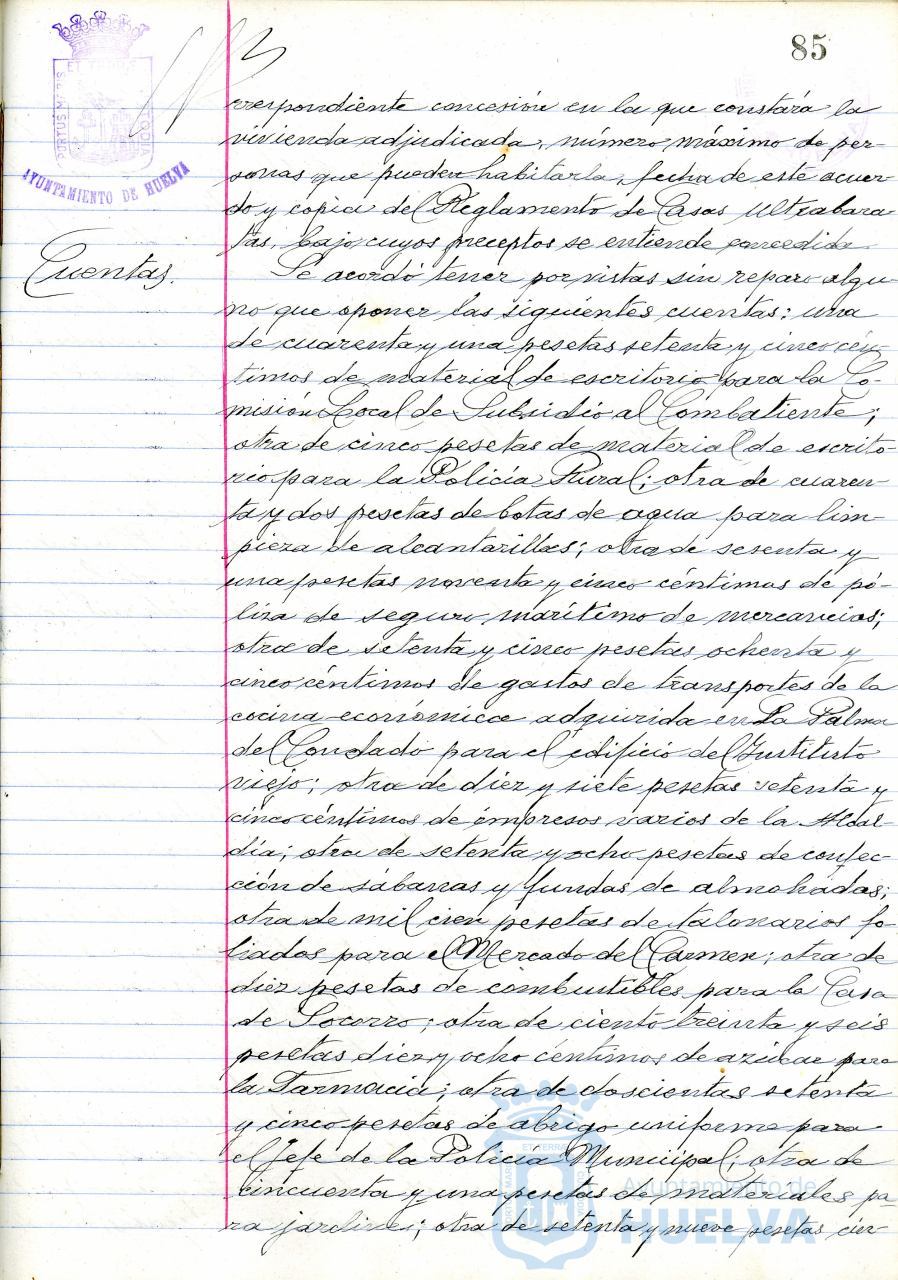 85
PORTUS MARIS ET TERRE CUSTODIA
AYUNTAMIENTO DE HUELVA
rrespondiente concesión en la que constará la
vivienda adjudicada, número máximo de per-
sonas que pueden habitarla, fecha de este acuer-
do y copia del Reglamento de Casas Ultrabara-
tas, bajo cuyos preceptos se entiende concedida.
Cuentas.
Se acordó tener por vistas sin reparo algu-
no que oponer las siguientes cuentas: una
de cuarenta y una pesetas setenta y cinco cén-
timos de material de escritorio para la Co-
misión Local de Subsidio al Combatiente;
otra de cinco pesetas de material de escrito-
rio para la Policía Rural; otra de cuaren-
ta y dos pesetas de botas de agua para lim-
pieza de alcantarillas; otra de sesenta y
una pesetas noventa y cinco céntimos de pó-
liza de seguro marítimo de mercancias;
otra de setenta y cinco pesetas ochenta y
cinco céntimos de gastos de transportes de la
cocina económica adquirida en La Palma
del Condado para el edificio del Instituto
viejo; otra de diez y siete pesetas setenta y
cinco céntimos de impresos varios de la Alcal-
día; otra de setenta y ocho pesetas de confec-
ción de sábanas y fundas de almohadas;
otra de mil cien pesetas de talonarios fo-
liados para el Mercado del Carmen; otra de
diez pesetas de combustibles para la Casa
de Socorro; otra de ciento treinta y seis
pesetas diez y ocho céntimos de azúcar para
la Farmacia; otra de doscientas setenta
y cinco pesetas de abrigo uniforme para
el Jefe de la Policía Municipal; otra de
cincuenta y una pesetas de materiales pa-
ra jardines; otra de setenta y nueve pesetas cin-
Ayuntamiento de
HUELVA